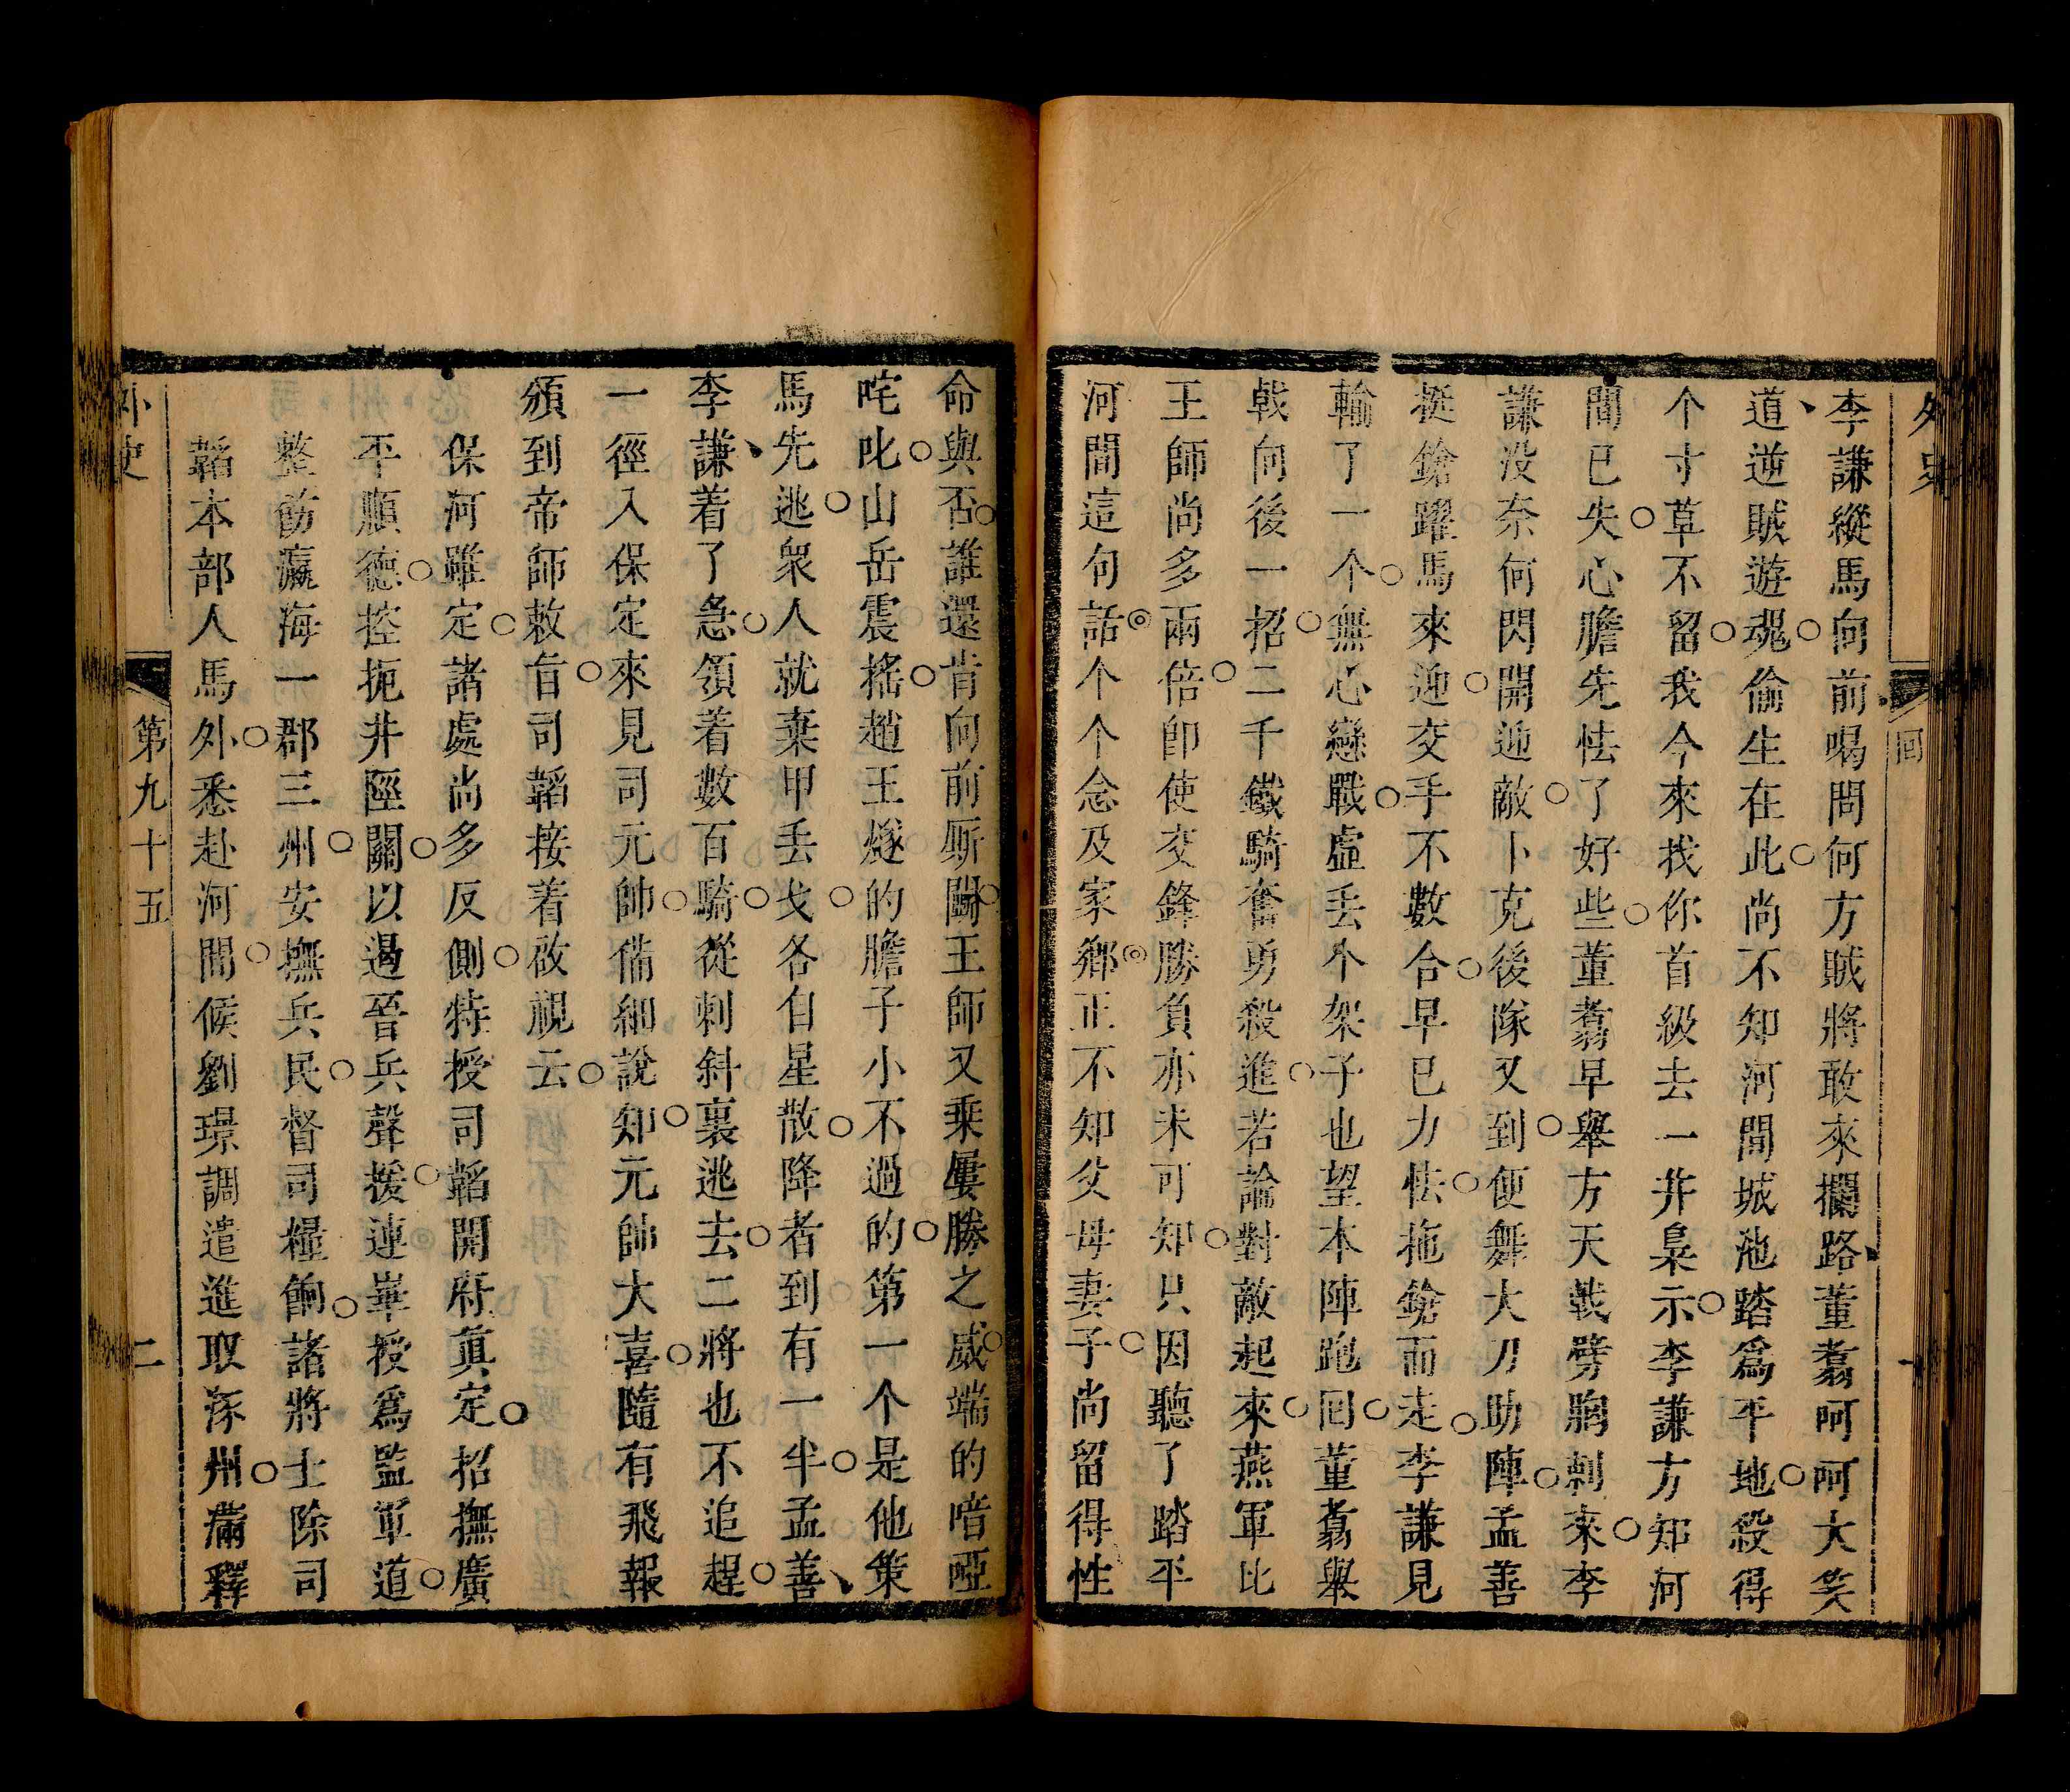 外史
回
李謙縱馬向前喝問何方賊將敢來攔路董翥呵呵大笑
道逆賊遊魂偷生在此尚不知河間城池踏爲平地殺得
个寸草不留我今來找你首級去一并梟示李謙方知河
間已失心膽先怯了好些董翥早舉方天戟劈胸刺來李
謙没奈何閃開迎敵卜克後隊又到便舞大刀助陣孟善
挺鎗躍馬來迎交手不數合早已力怯拖鎗而走李謙見
輸了一个無心戀戰虛丢个架子也望本陣跑回董翥舉
戟向後一招二千鐵騎奮勇殺進若論對敵起來燕軍比
王師尚多兩倍即使交鋒勝負亦未可知只因聽了踏平
河間這句話个个念及家鄉正不知父母妻子尚留得性
命與否誰還肯向前厮鬭王師又乗屢勝之威端的喑啞
咤叱山岳震搖趙王燧的膽子小不過的第一个是他策
馬先逃衆人就棄甲丢戈各自星散降者到有一半孟善
李謙着了急領着數百騎從刺斜裏逃去二將也不追趕
一徑入保定來見司元帥備細說知元帥大喜隨有飛報
頒到帝師敕旨司韜接着啟視云
保河雖定諸處尚多反側特授司韜開府眞定招撫廣
平順德控扼井陘關以遏晉兵聲援連華授爲監軍道
整飭瀛海一郡三州安撫兵民督司糧餉諸將士除司
韜本部人馬外悉赴河間候劉璟調遣進取涿州滿釋
外史
第九十五
二